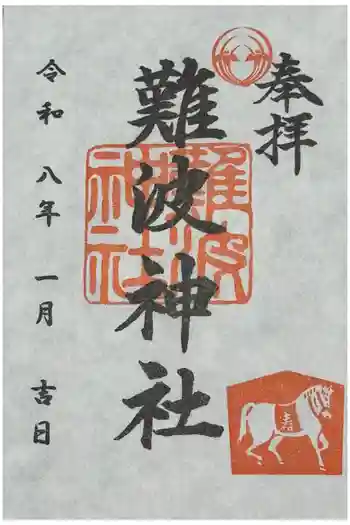 奉拝
難波神社
令和八年一月吉日
難波神社